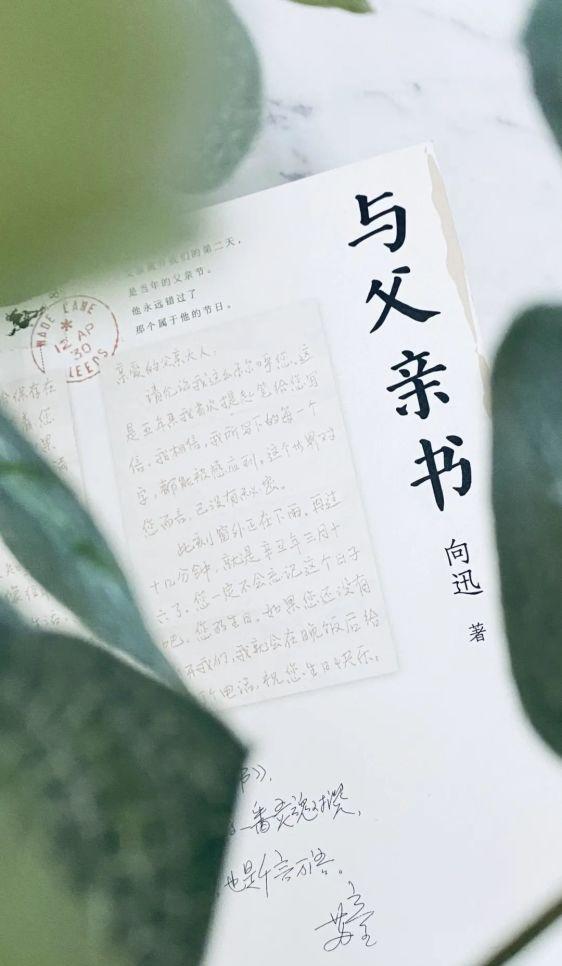 与父亲书
向迅 著
是当年的父亲节。
他永远错过了
那个属于他的节日。
WADE LANE
12 AP
30
LEEDS
亲爱的父亲大人：
请允许我这么称呼您。这
是五年来我首次提起笔给您写
信。我相信，我所写下的每一个
字，都能被感应到。这个世界对
您而言，已没有秘密。
此刻窗外正在下雨。再过
十几分钟，就是辛丑年三月十
六了。您一定不会忘记这个日子
吧。您的生日。如果您还没有
我们，我就会在晚饭后给
个电话，祝您生日快乐。
书》，
一番灵魂对
也是千言万语。